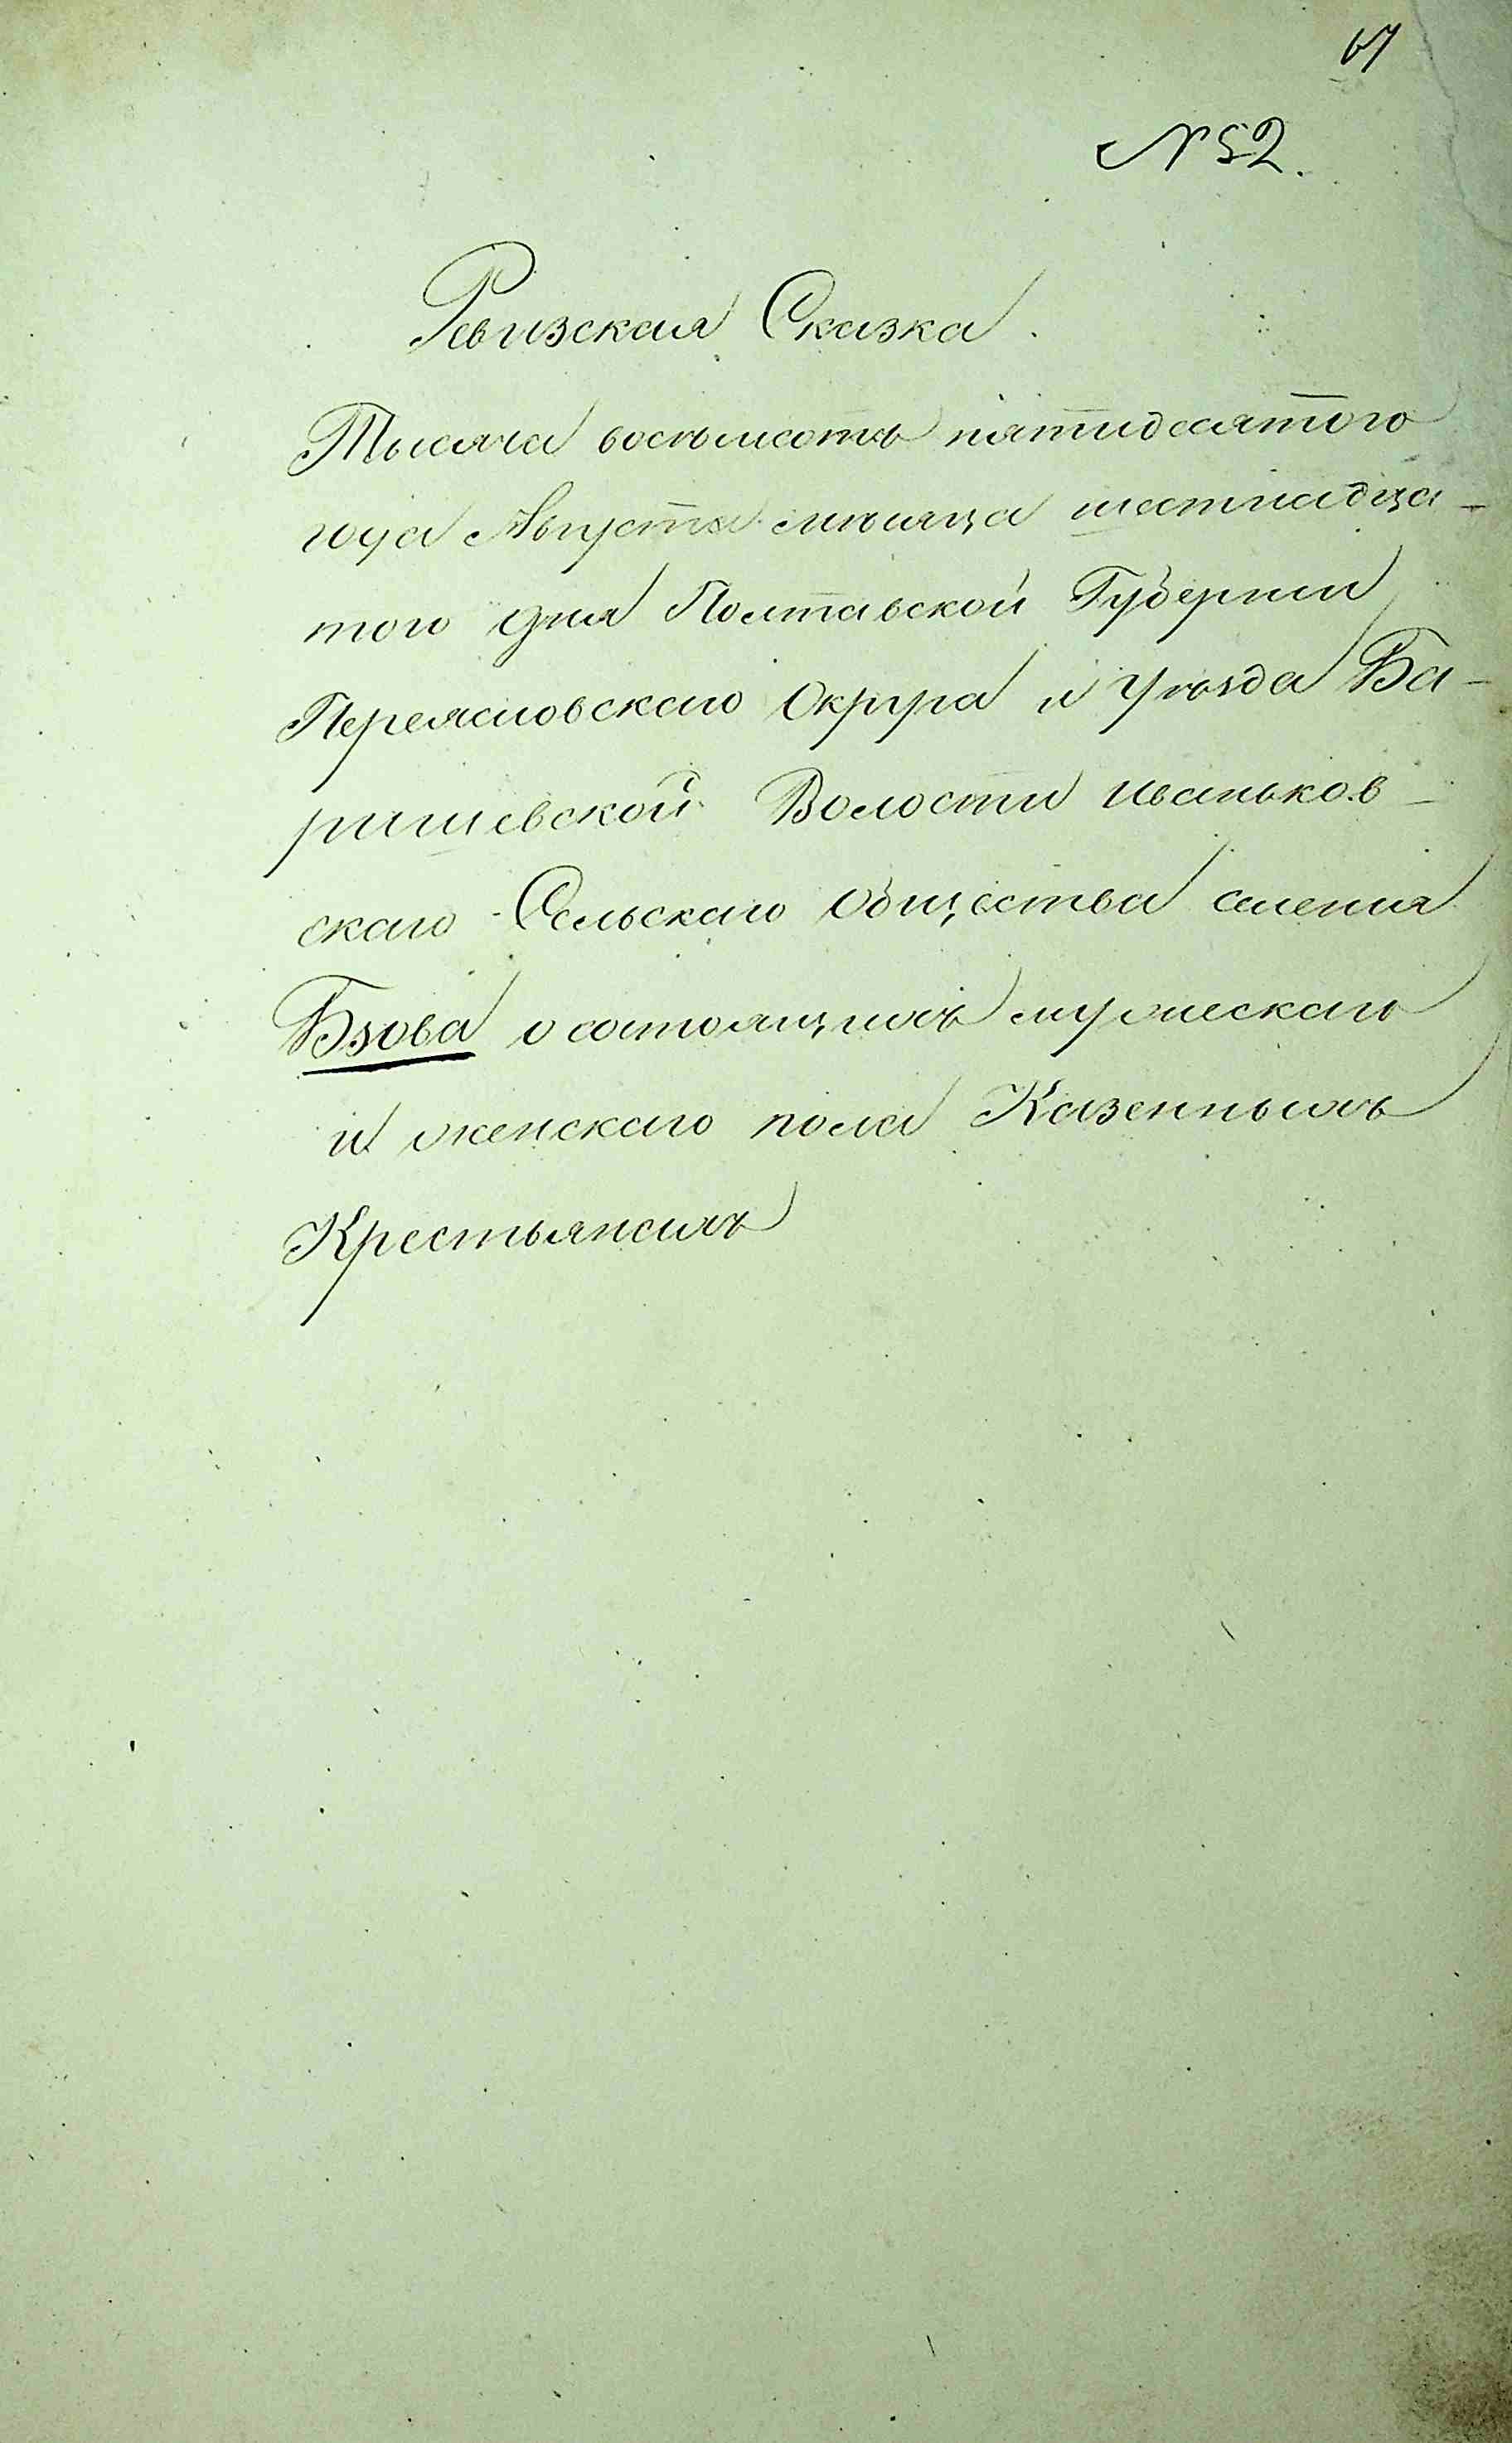 67
№ 52.
Ревизская Сказка.
Тысяча восемьсотъ пятидесятого
года Августа мѣсяца шестнадца-
того дня Полтавской Губернии
Переясловскаго Округа и Уѣзда Ба-
ришевской Волости Иваньков-
скаго Сельскаго Общества селения
Бзова о состоящихъ мужескаго
и женскаго пола Казенныхъ
Крестьянахъ